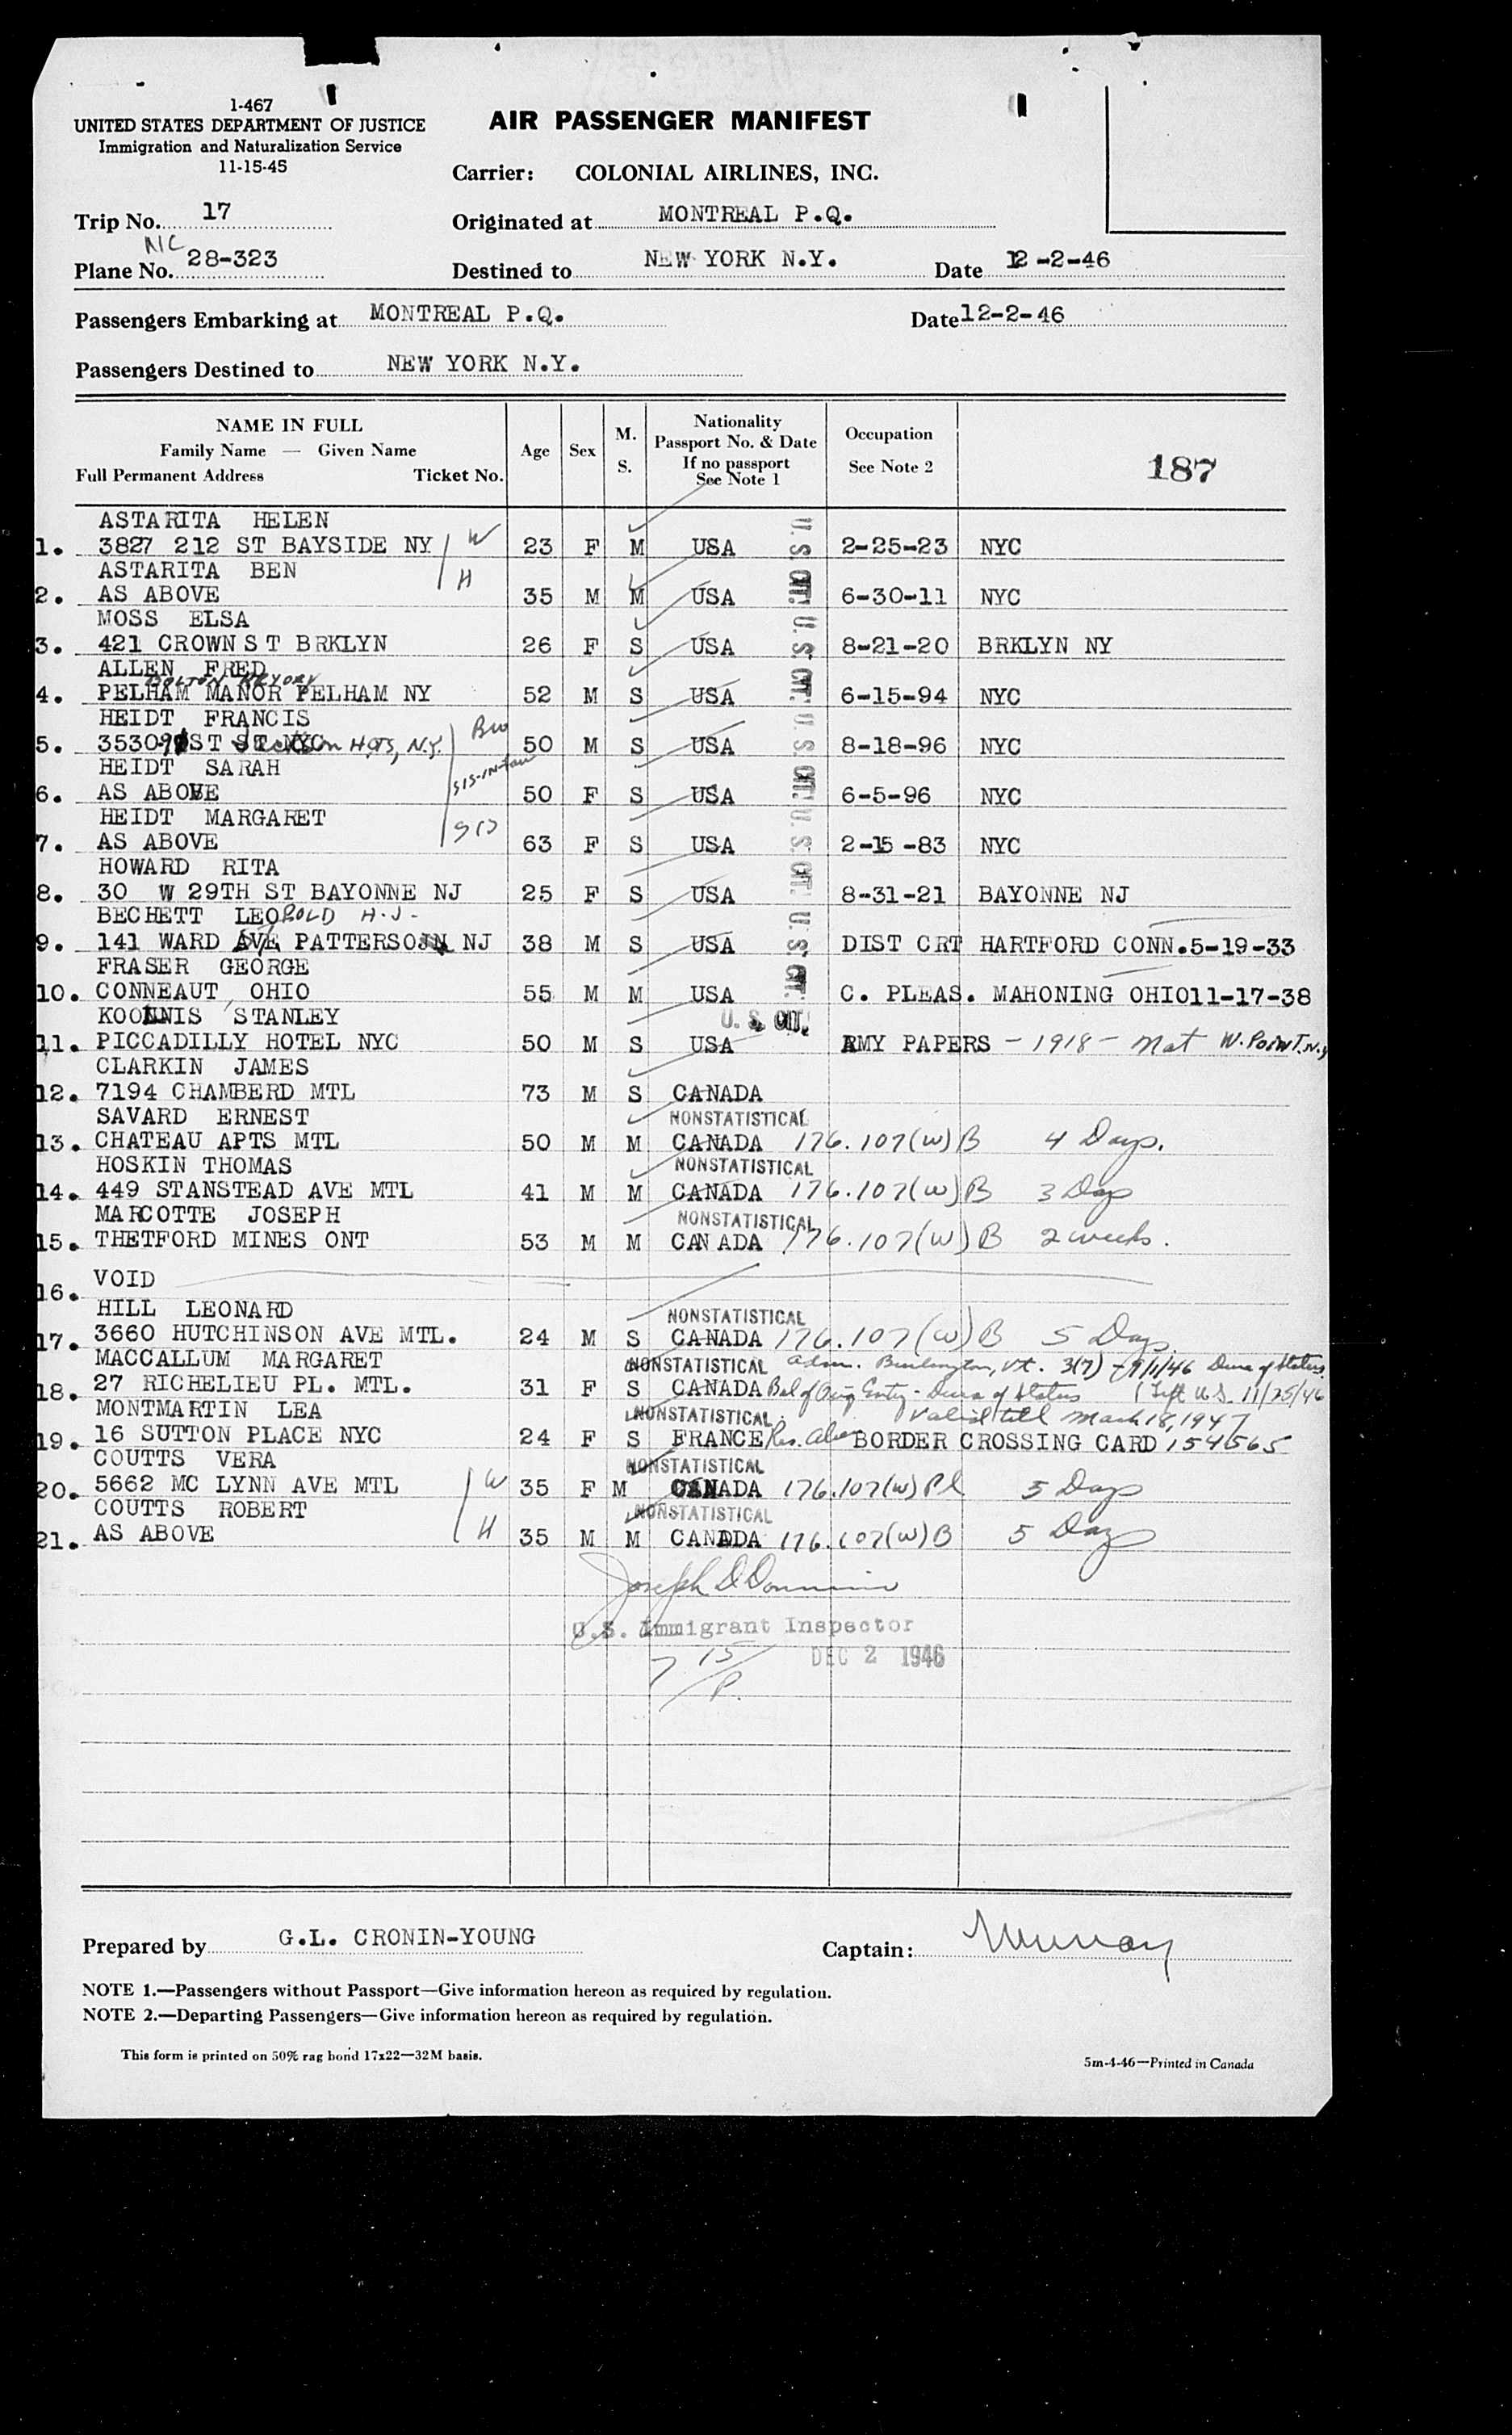 1-467
UNITED STATES DEPARTMENT OF JUSTICE
Immigration and Naturalization Service
11-15-45
AIR PASSENGER MANIFEST
Carrier: COLONIAL AIRLINES, INC.
Trip No. 17
Originated at MONTREAL P.Q.
Plane No. NC 28-323
Destined to NEW YORK N.Y. Date 12-2-46
Passengers Embarking at MONTREAL P.Q. Date 12-2-46
Passengers Destined to NEW YORK N.Y.
NAME IN FULL
Family Name — Given Name
Full Permanent Address Ticket No.
Age
Sex
M.
S.
Nationality
Passport No. & Date
If no passport
See Note 1
Occupation
See Note 2
187
ASTARITA HELEN
1. 3827 212 ST BAYSIDE NY W 23 F M USA U.S. CIT. 2-25-23 NYC
ASTARITA BEN
2. AS ABOVE H 35 M M USA 6-30-11 NYC
MOSS ELSA
3. 421 CROWN ST BRKLYN 26 F S USA U.S. CIT. 8-21-20 BRKLYN NY
ALLEN FRED
BOLTON
4. PELHAM MANOR PELHAM NY 52 M S USA 6-15-94 NYC
HEIDT FRANCIS
5. 3530 91ST Jackson Hgts, N.Y. Bro 50 M S USA U.S. CIT. 8-18-96 NYC
HEIDT SARAH
6. AS ABOVE SIS-IN-law 50 F S USA 6-5-96 NYC
HEIDT MARGARET
7. AS ABOVE SIS 63 F S USA U.S. CIT. 2-15-83 NYC
HOWARD RITA
8. 30 W 29TH ST BAYONNE NJ 25 F S USA 8-31-21 BAYONNE NJ
BECHETT LEOPOLD H.J.
9. 141 WARD PATTERSON NJ 38 M S USA U.S. CIT. DIST CRT HARTFORD CONN. 5-19-33
FRASER GEORGE
10. CONNEAUT, OHIO 55 M M USA C. PLEAS. MAHONING OHIO 11-17-38
KOONNIS STANLEY U.S. CIT.
11. PICCADILLY HOTEL NYC 50 M S USA ARMY PAPERS - 1918 - Nat W. Point. N.Y
CLARKIN JAMES
12. 7194 CHAMBERD MTL 73 M S CANADA
SAVARD ERNEST NONSTATISTICAL
13. CHATEAU APTS MTL 50 M M CANADA 176.107(W)B 4 Days.
HOSKIN THOMAS NONSTATISTICAL
14. 449 STANSTEAD AVE MTL 41 M M CANADA 176.107(W)B 3 Days
MARCOTTE JOSEPH NONSTATISTICAL
15. THETFORD MINES ONT 53 M M CANADA 176.107(W)B 2 weeks.
16. VOID
HILL LEONARD NONSTATISTICAL
17. 3660 HUTCHINSON AVE MTL. 24 M S CANADA 176.107(W)B 5 Days
MACCALLUM MARGARET NONSTATISTICAL Adm. Burlington, Vt. 3(7) - 9/1/46 Dura of Status.
18. 27 RICHELIEU PL. MTL. 31 F S CANADA Bal of Orig Entry - Dura of Status (Left U.S. 11/25/46
MONTMARTIN LEA NONSTATISTICAL Valid till March 18, 1947
19. 16 SUTTON PLACE NYC 24 F S FRANCE Res. Alien BORDER CROSSING CARD 154565
COUTTS VERA NONSTATISTICAL
20. 5662 MC LYNN AVE MTL W 35 F M CANADA 176.107(W)Pl 5 Days
COUTTS ROBERT NONSTATISTICAL
21. AS ABOVE H 35 M M CANADA 176.107(W)B 5 Days
Joseph D
U.S. Immigrant Inspector
7 15/P.
DEC 2 1946
Prepared by G.L. CRONIN-YOUNG
Captain: Murray
NOTE 1.—Passengers without Passport—Give information hereon as required by regulation.
NOTE 2.—Departing Passengers—Give information hereon as required by regulation.
This form is printed on 50% rag bond 17x22—32M basis.
5m-4-46—Printed in Canada